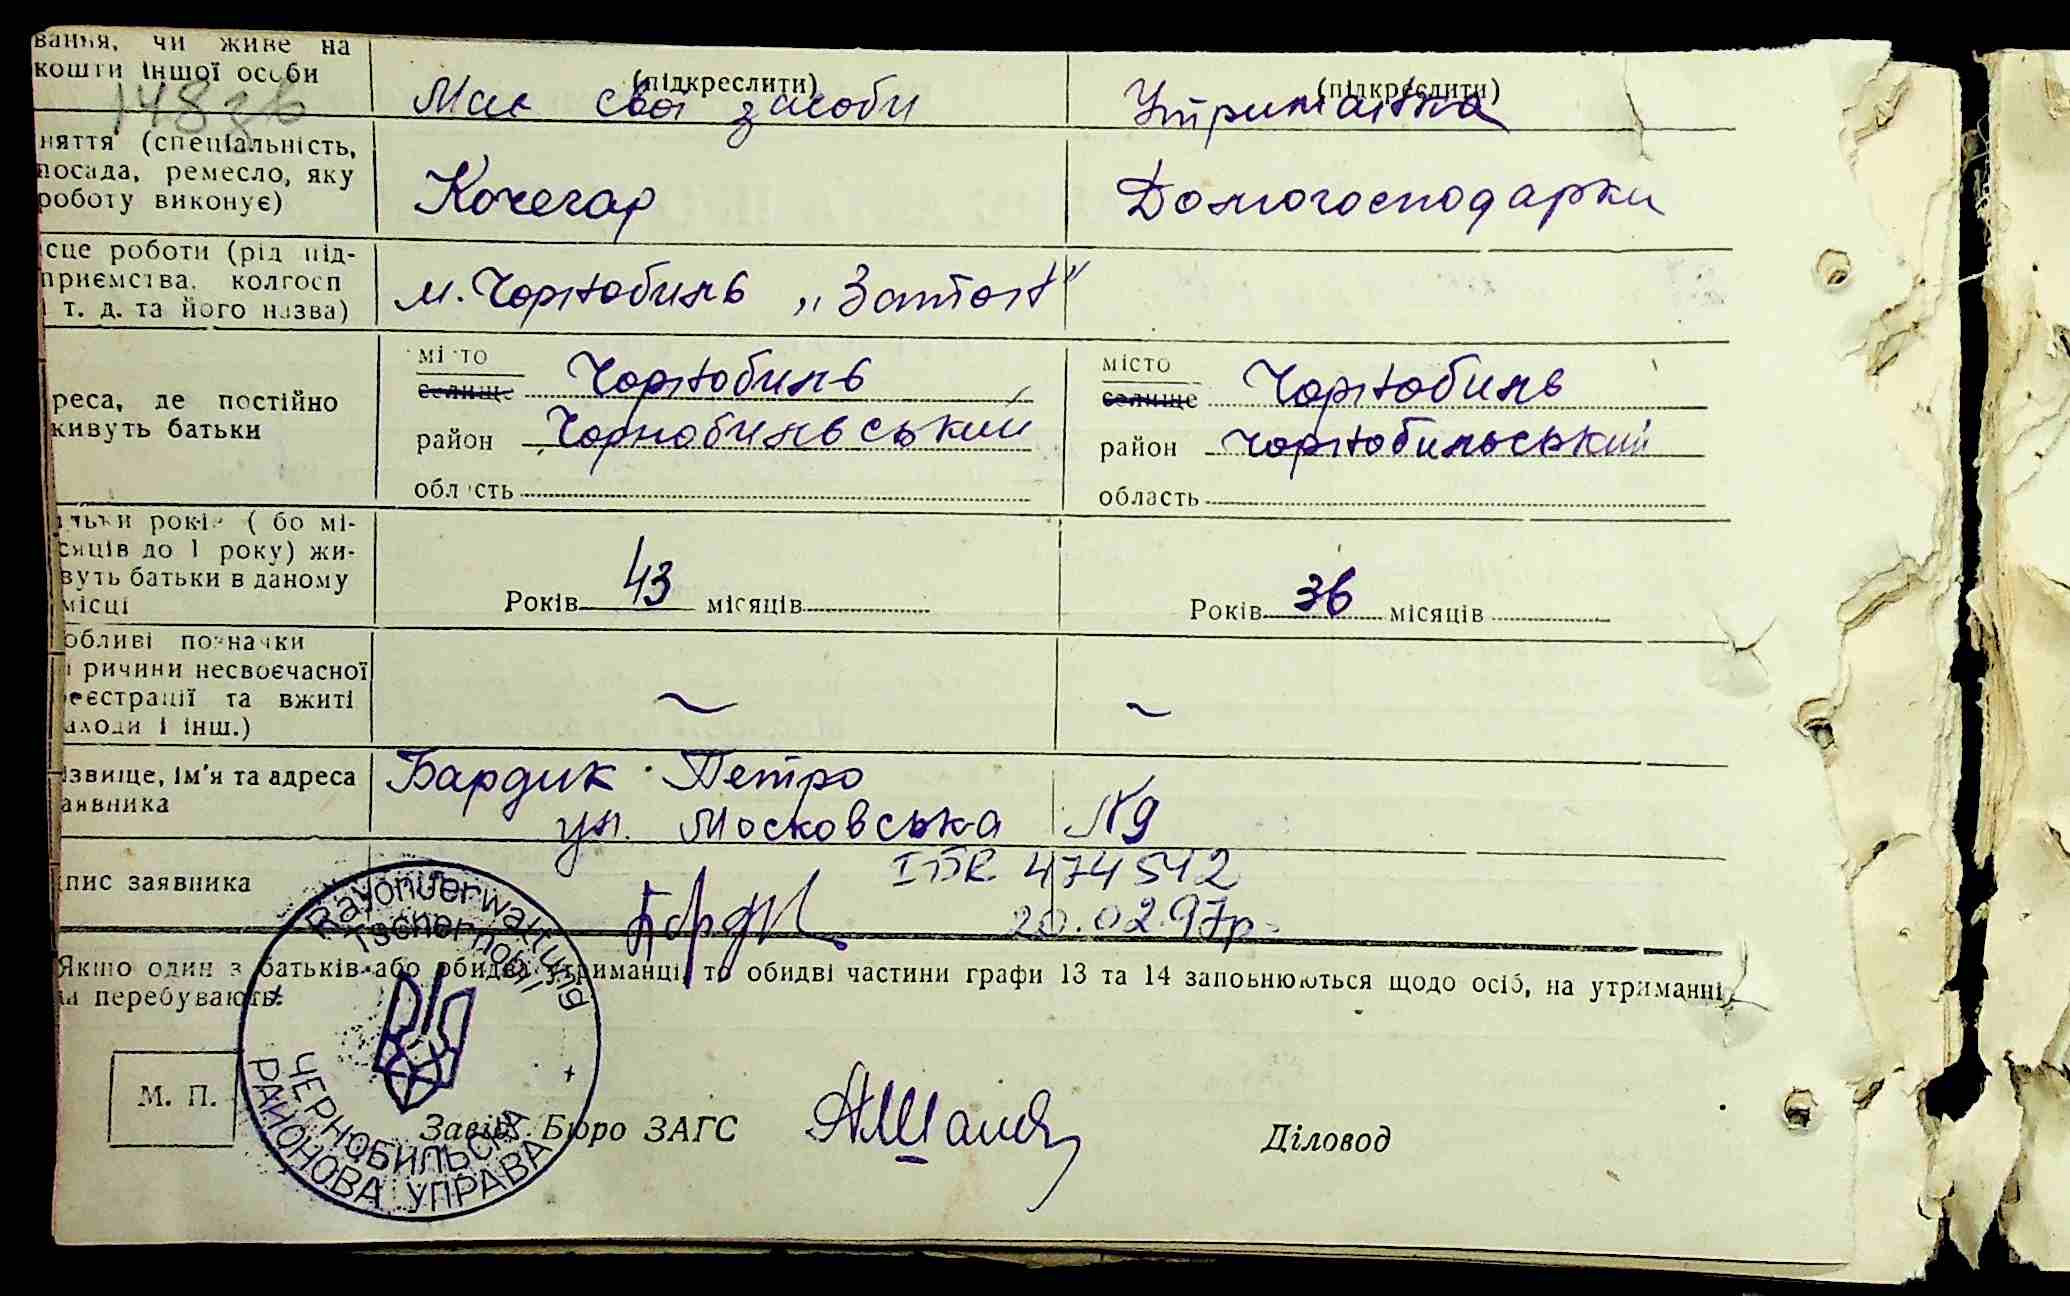 вання, чи живе на
кошти іншої особи
(підкреслити)
(підкреслити)
Має свої засоби
Утриманка
няття (спеціальність,
посада, ремесло, яку
роботу виконує)
Кочегар
Домогосподарки
ісце роботи (рід під-
приємства, колгосп
і т. д. та його назва)
м. Чорнобиль „Затон"
реса, де постійно
живуть батьки
місто
селище Чорнобиль
район Чорнобильський
область
місто
селище Чорнобиль
район Чорнобильський
область
ільки років ( бо мі-
сяців до 1 року) жи-
вуть батьки в даному
місці
Років 43 місяців
Років 36 місяців
обливі позначки
ричини несвоєчасної
реєстрації та вжиті
аходи і інш.)
~
~
ізвище, ім'я та адреса
аявника
Бардик Петро
ул. Московська №9
пис заявника
474542
20.02.97р.
Якщо один з батьків або обидва утриманці, то обидві частини графи 13 та 14 заповнюються щодо осіб, на утриманні
перебувають.
Rayonverwaltung
Tschernobil
ЧЕРНОБИЛЬСКА
РАЙОНОВА УПРАВА
М. П.
Завід. Бюро ЗАГС
Діловод